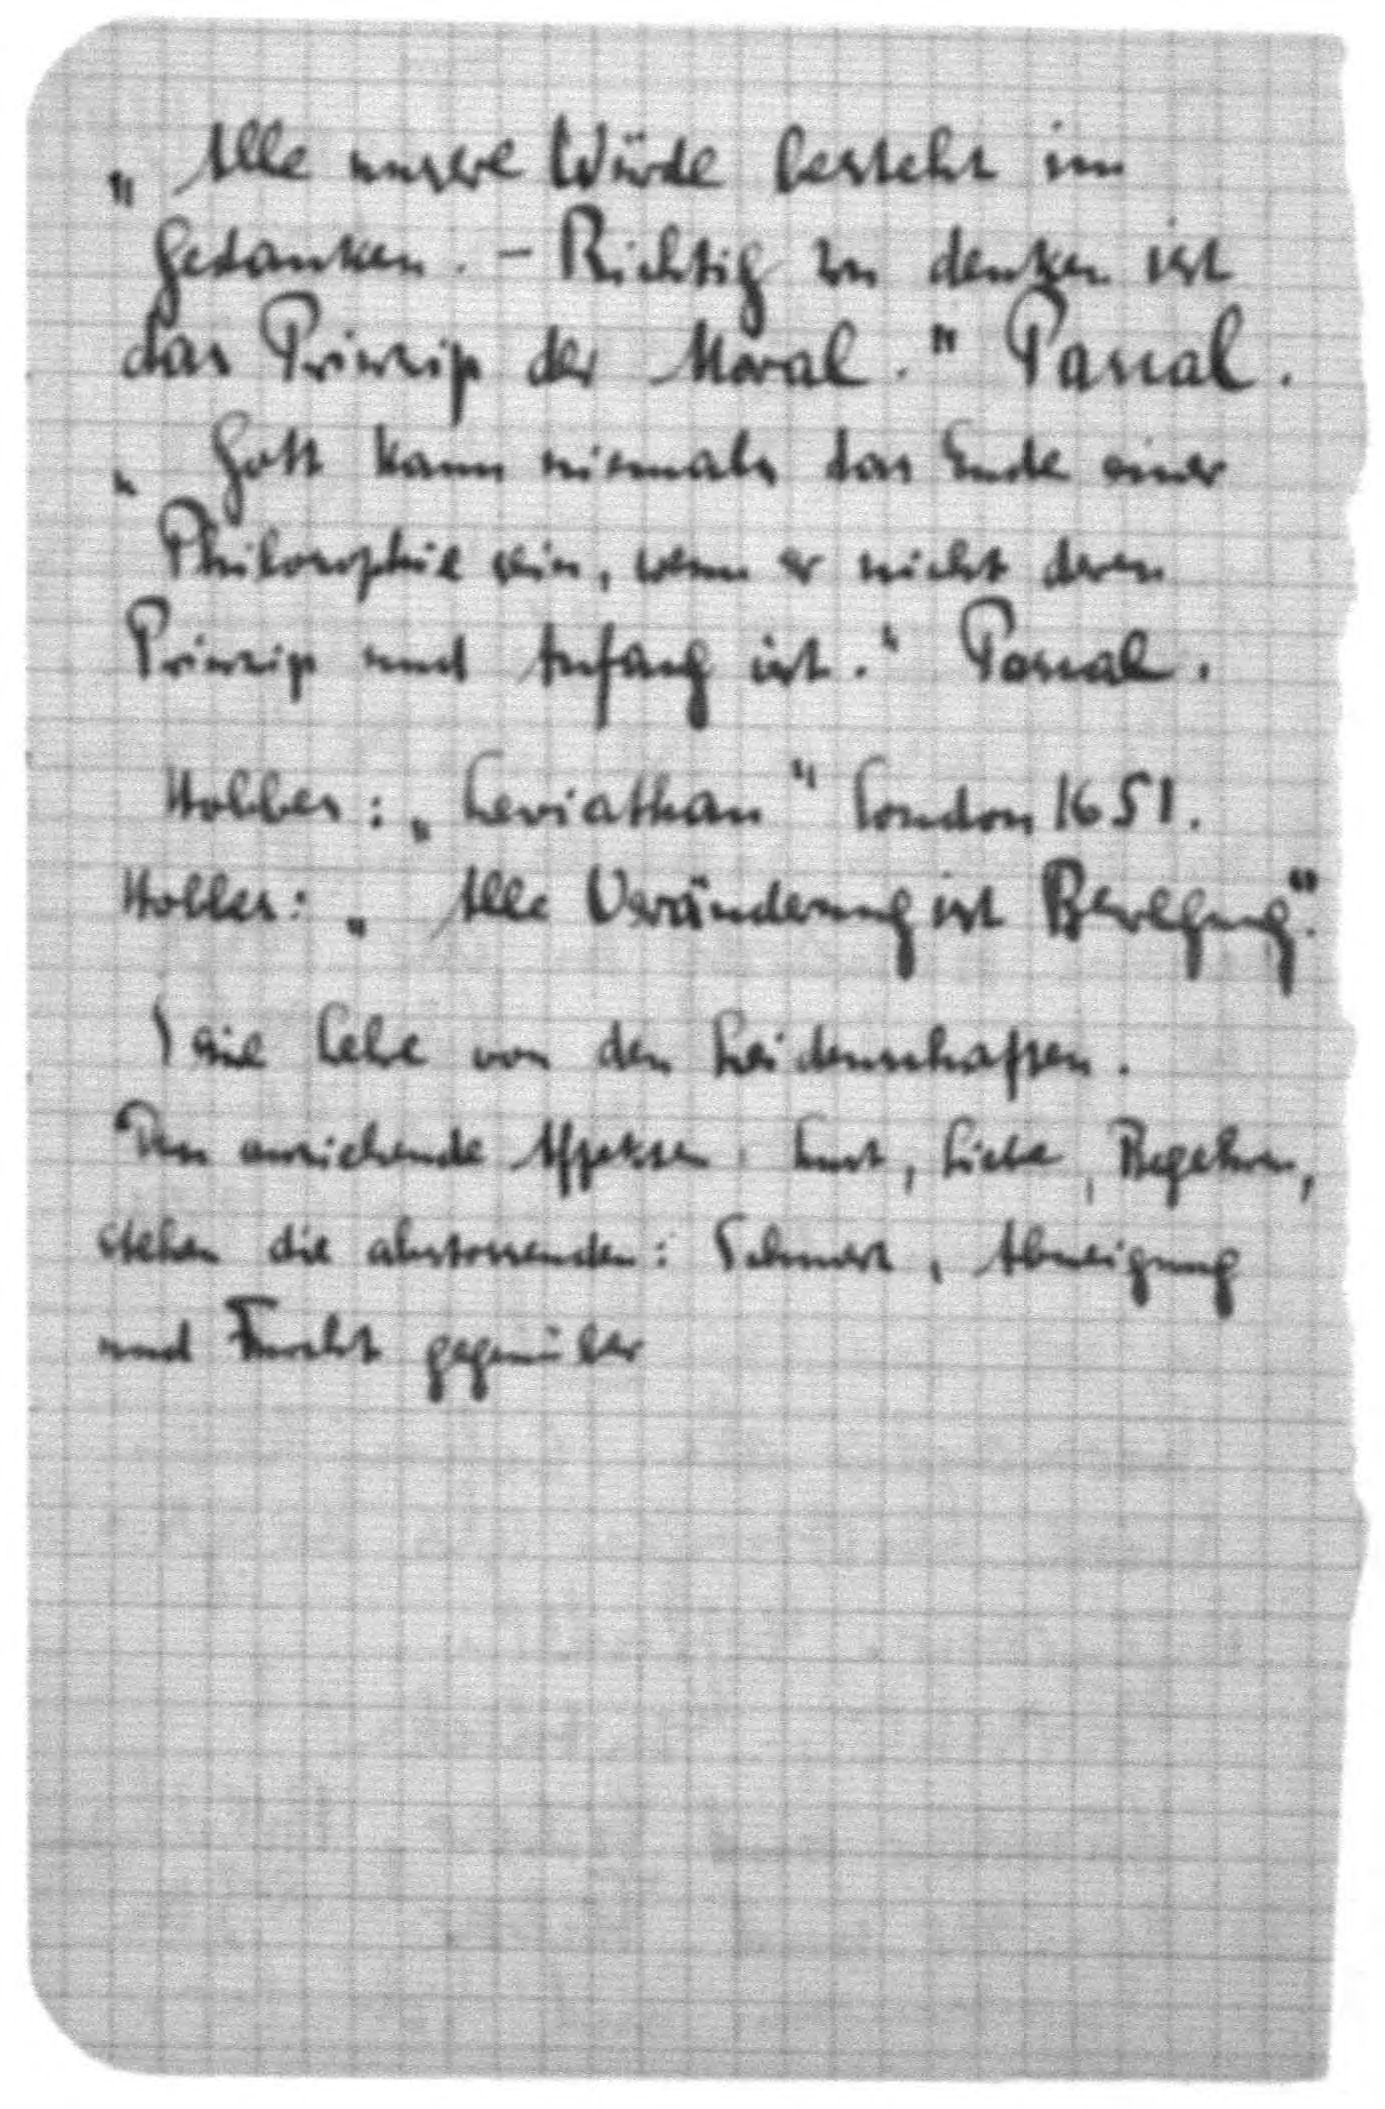 „ Alle unsere Würde besteht im
Gedanken. - Richtig zu denken ist
das Prinzip der Moral." Pascal.
„ Gott kann niemals das Ende einer
Philosophie sein, wenn er nicht deren
Prinzip und Anfang ist." Pascal.
Hobbes: „Leviathan" London 1651.
Hobbes: „ Alle Veränderung ist Bewegung".
eine Lehre von den Leidenschaften.
Den anziehende Affekten: Lust, Liebe, Begehren,
stehen die abstossenden: Schmerz, Abneigung
und Furcht gegenüber